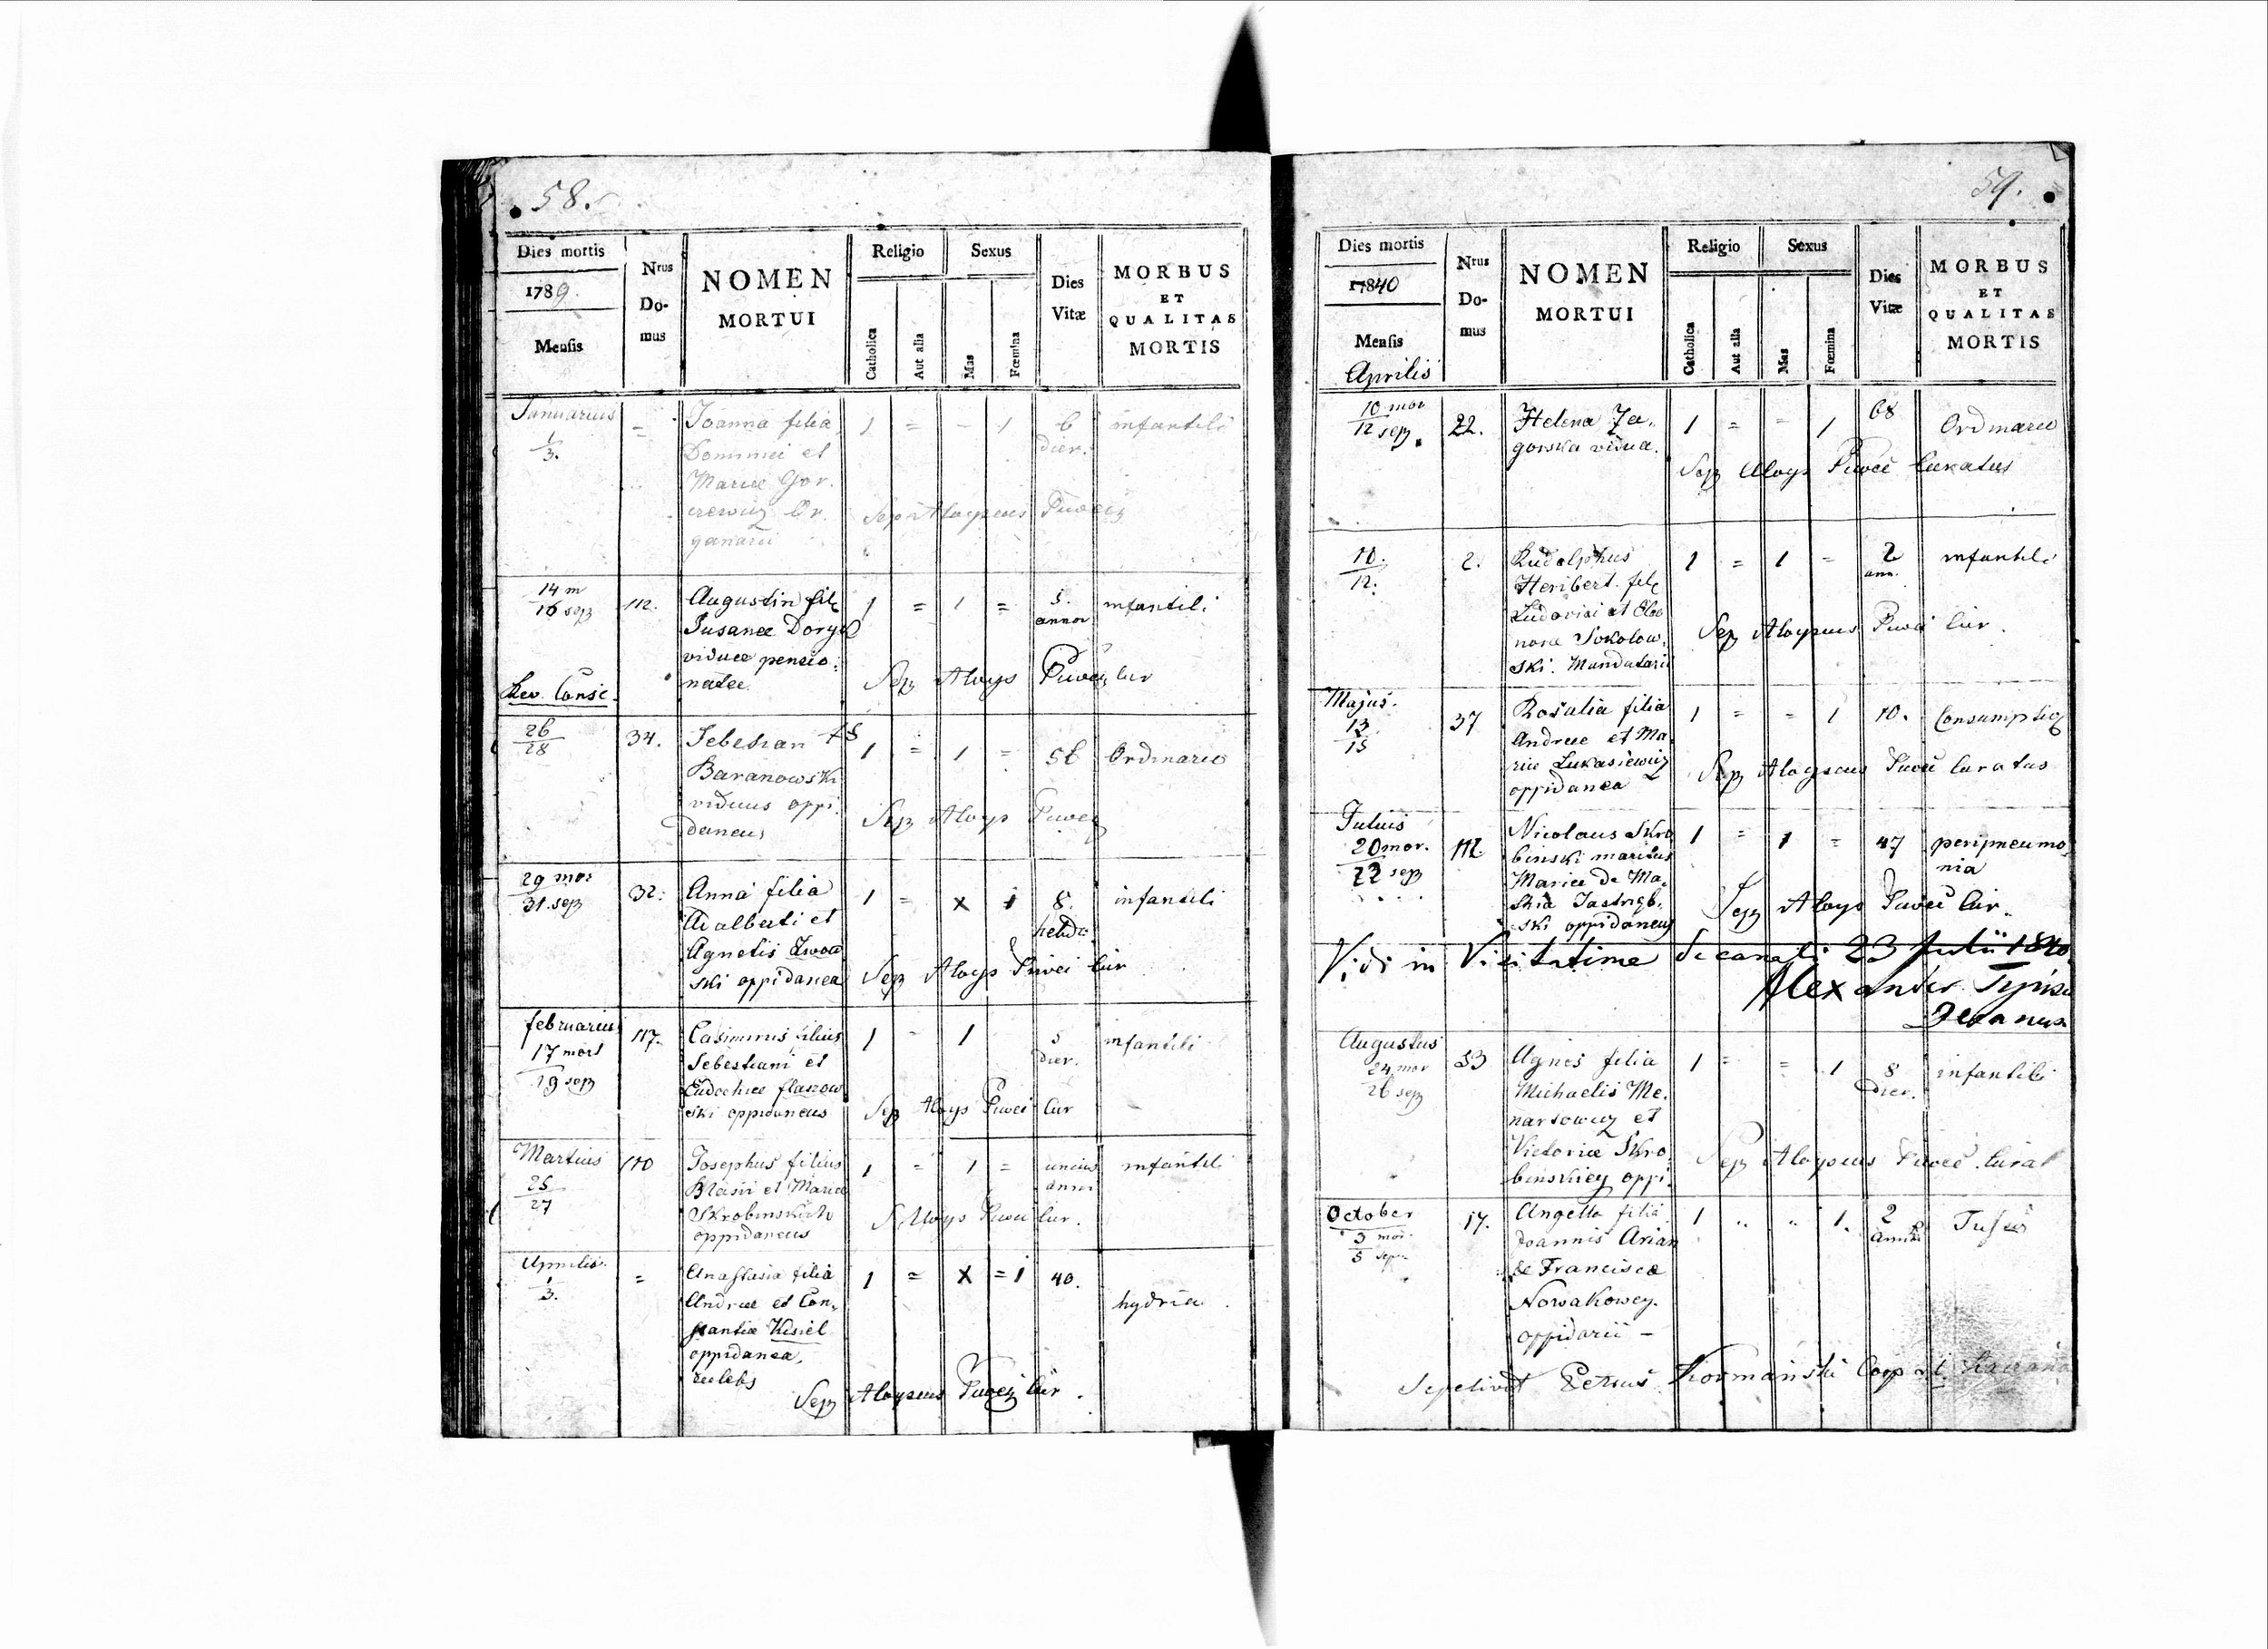 58.
Dies mortis
1789.
Mensis
Nrus
Do-
mus
NOMEN
MORTUI
Religio
Catholica
Aut alia
Sexus
Mas
Fœmina
Dies
Vitæ
MORBUS
ET
QUALITAS
MORTIS
Januarius = Joanna filia 1 = - 1 6 infantili
1/3. Dominici et dier.
Mariæ Gor.
Sep Aloysius
ganarii
14 m 112. Augustin fil 1 = 1 = 5. infantili
16 sep annor
viduæ pensio:
natæ. Sep Aloys Cur
Rev. Consi.
26 34. 1 = 1 = 56 Ordinaria
28 Baranowski
viduus oppi.
daneus Sep Aloys
29 mor 32: Anna filia 1 = x 1 8. infantili
31. sep Adalberti et hebd.
Agnetis
ski oppidanea Sep Aloys Cur
februarius 117. Casimirus filius 1 - 1 5 infantili
17 mort Sebestiani et dier.
19 sep
ski oppidaneus Sep Aloys Cur
Martius 110 Josephus filius 1 = 1 = unius infantili
25 Blasii et Mariæ anni
27 Skrobinskich
oppidaneus S. Aloys Cur.
Aprilis = Anastasia filia 1 = x = 1 40.
1/3. Andreæ et Con. hydria.
stantiæ Kisiel
oppidanea,
cælebs
Sep Aloysius Cur.
59.
Dies mortis
17840
Mensis
Aprilis
Nrus
Do-
mus
NOMEN
MORTUI
Religio
Catholica
Aut alia
Sexus
Mas
Fœmina
Dies
Vitæ
MORBUS
ET
QUALITAS
MORTIS
10 mor 22. Helena Za. 1 = = 1 68 Ordinaria
12 sep. gorska vidua.
Sep Aloys Curatus
10. 2. Rudolphus 1 = 1 = 2 infantili
12. Heribert. fil ann.
Ludovici et Eleo
nora Sokolow. Sep Aloysius Cur.
ski. Mandatarii
Majus. 37 Rosalia filia 1 = = 1 10. Consumptio
13 Andreæ et Ma.
15 riæ Lukasiewicz
oppidanea Sep Aloysius Curatus
Julius 112. Nicolaus Skro 1 = 1 = 47 peripneumo
20 mor. binski maritus nia
22 sep Mariæ de Ma.
Jastrzęb.
ski oppidaneus Sep Aloys Cur.
Vidi in Visitatione Decanali 23 Julii 1840
Alexander
Decanus
Augustus 53 Agnes filia 1 = = 1 8 infantili
24 mor Michaelis Me. dier.
26 sep narsowicz et
Victoriæ Skro. Sep Aloysius Curat
binskiey oppi.
October 17. Angella filia 1 .. .. 1. 2
3 mor. Joannis Arian
5 sep. & Francisca
Nowakowey.
oppidarii —
Sepelivit Petrus Kormański Coop